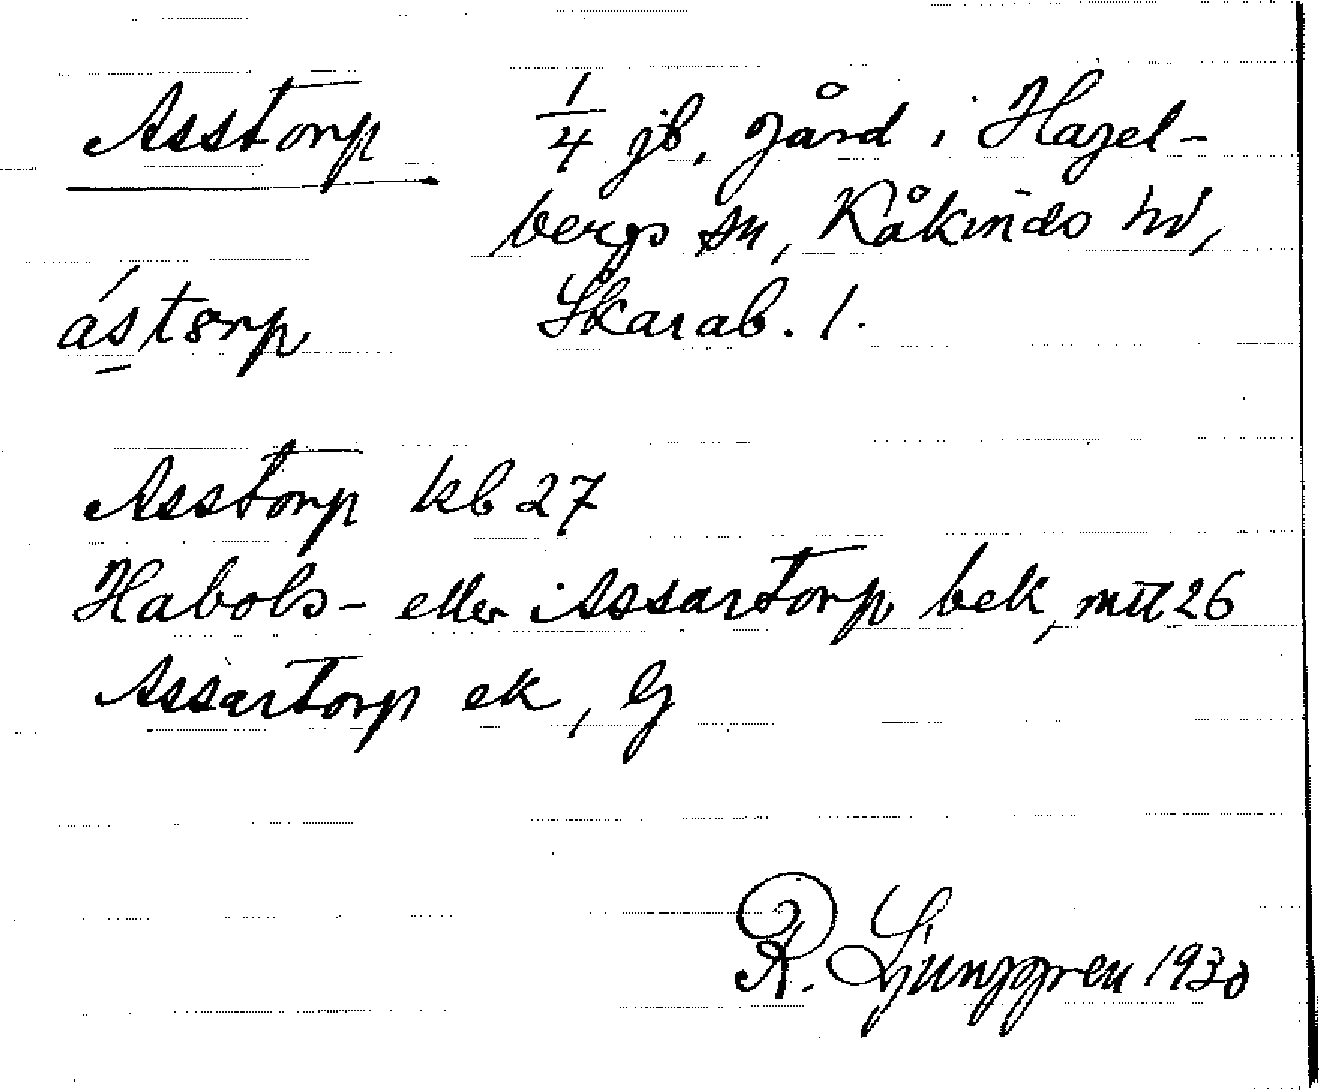 Asstorp
1/4 jb. gård i Hagel-
bergs sn, Kåkinds hd,
Skarab. l.
ástorp
Asstorp kb 27
Habols- eller Assartorp bek, mtl 26
Assartorp ek, G
R. Ljunggren 1930